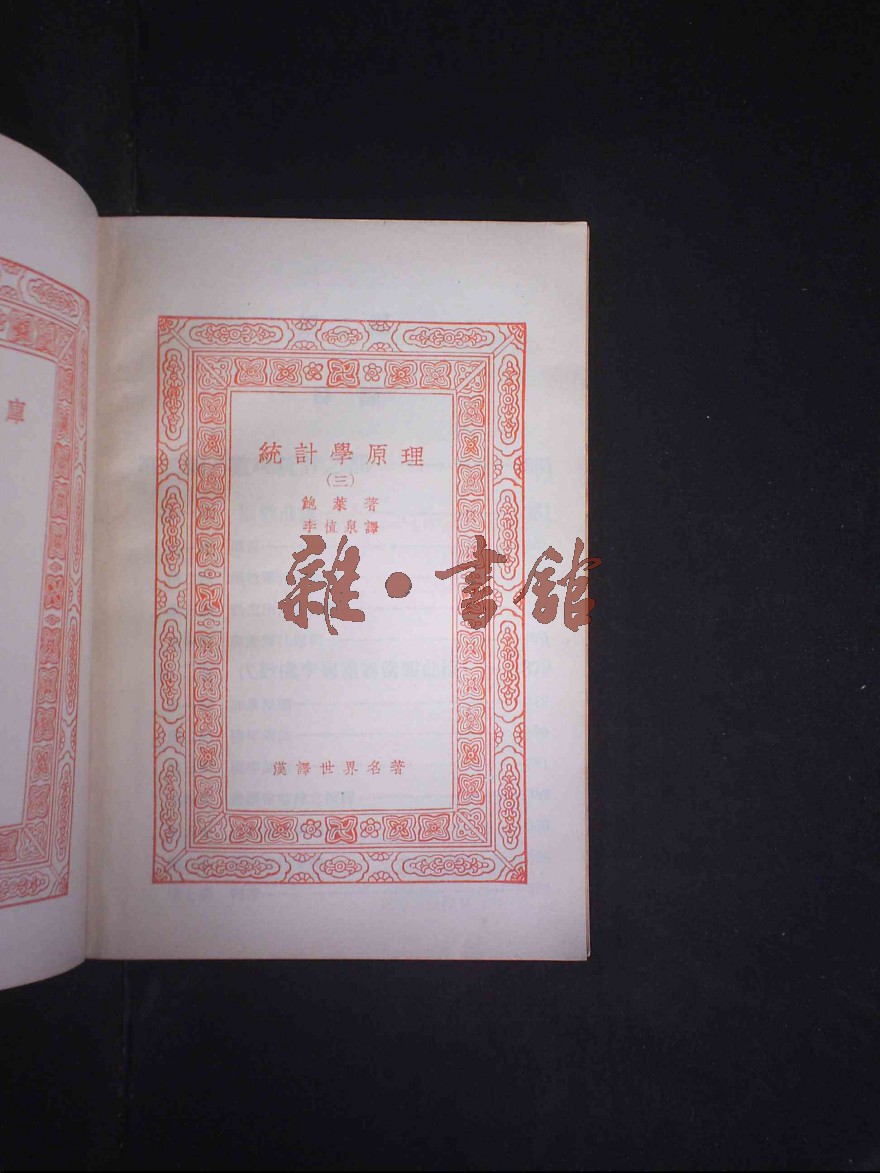 庫
統計學原理
(三)
鮑萊著
李植泉譯
雜·書館
漢譯世界名著